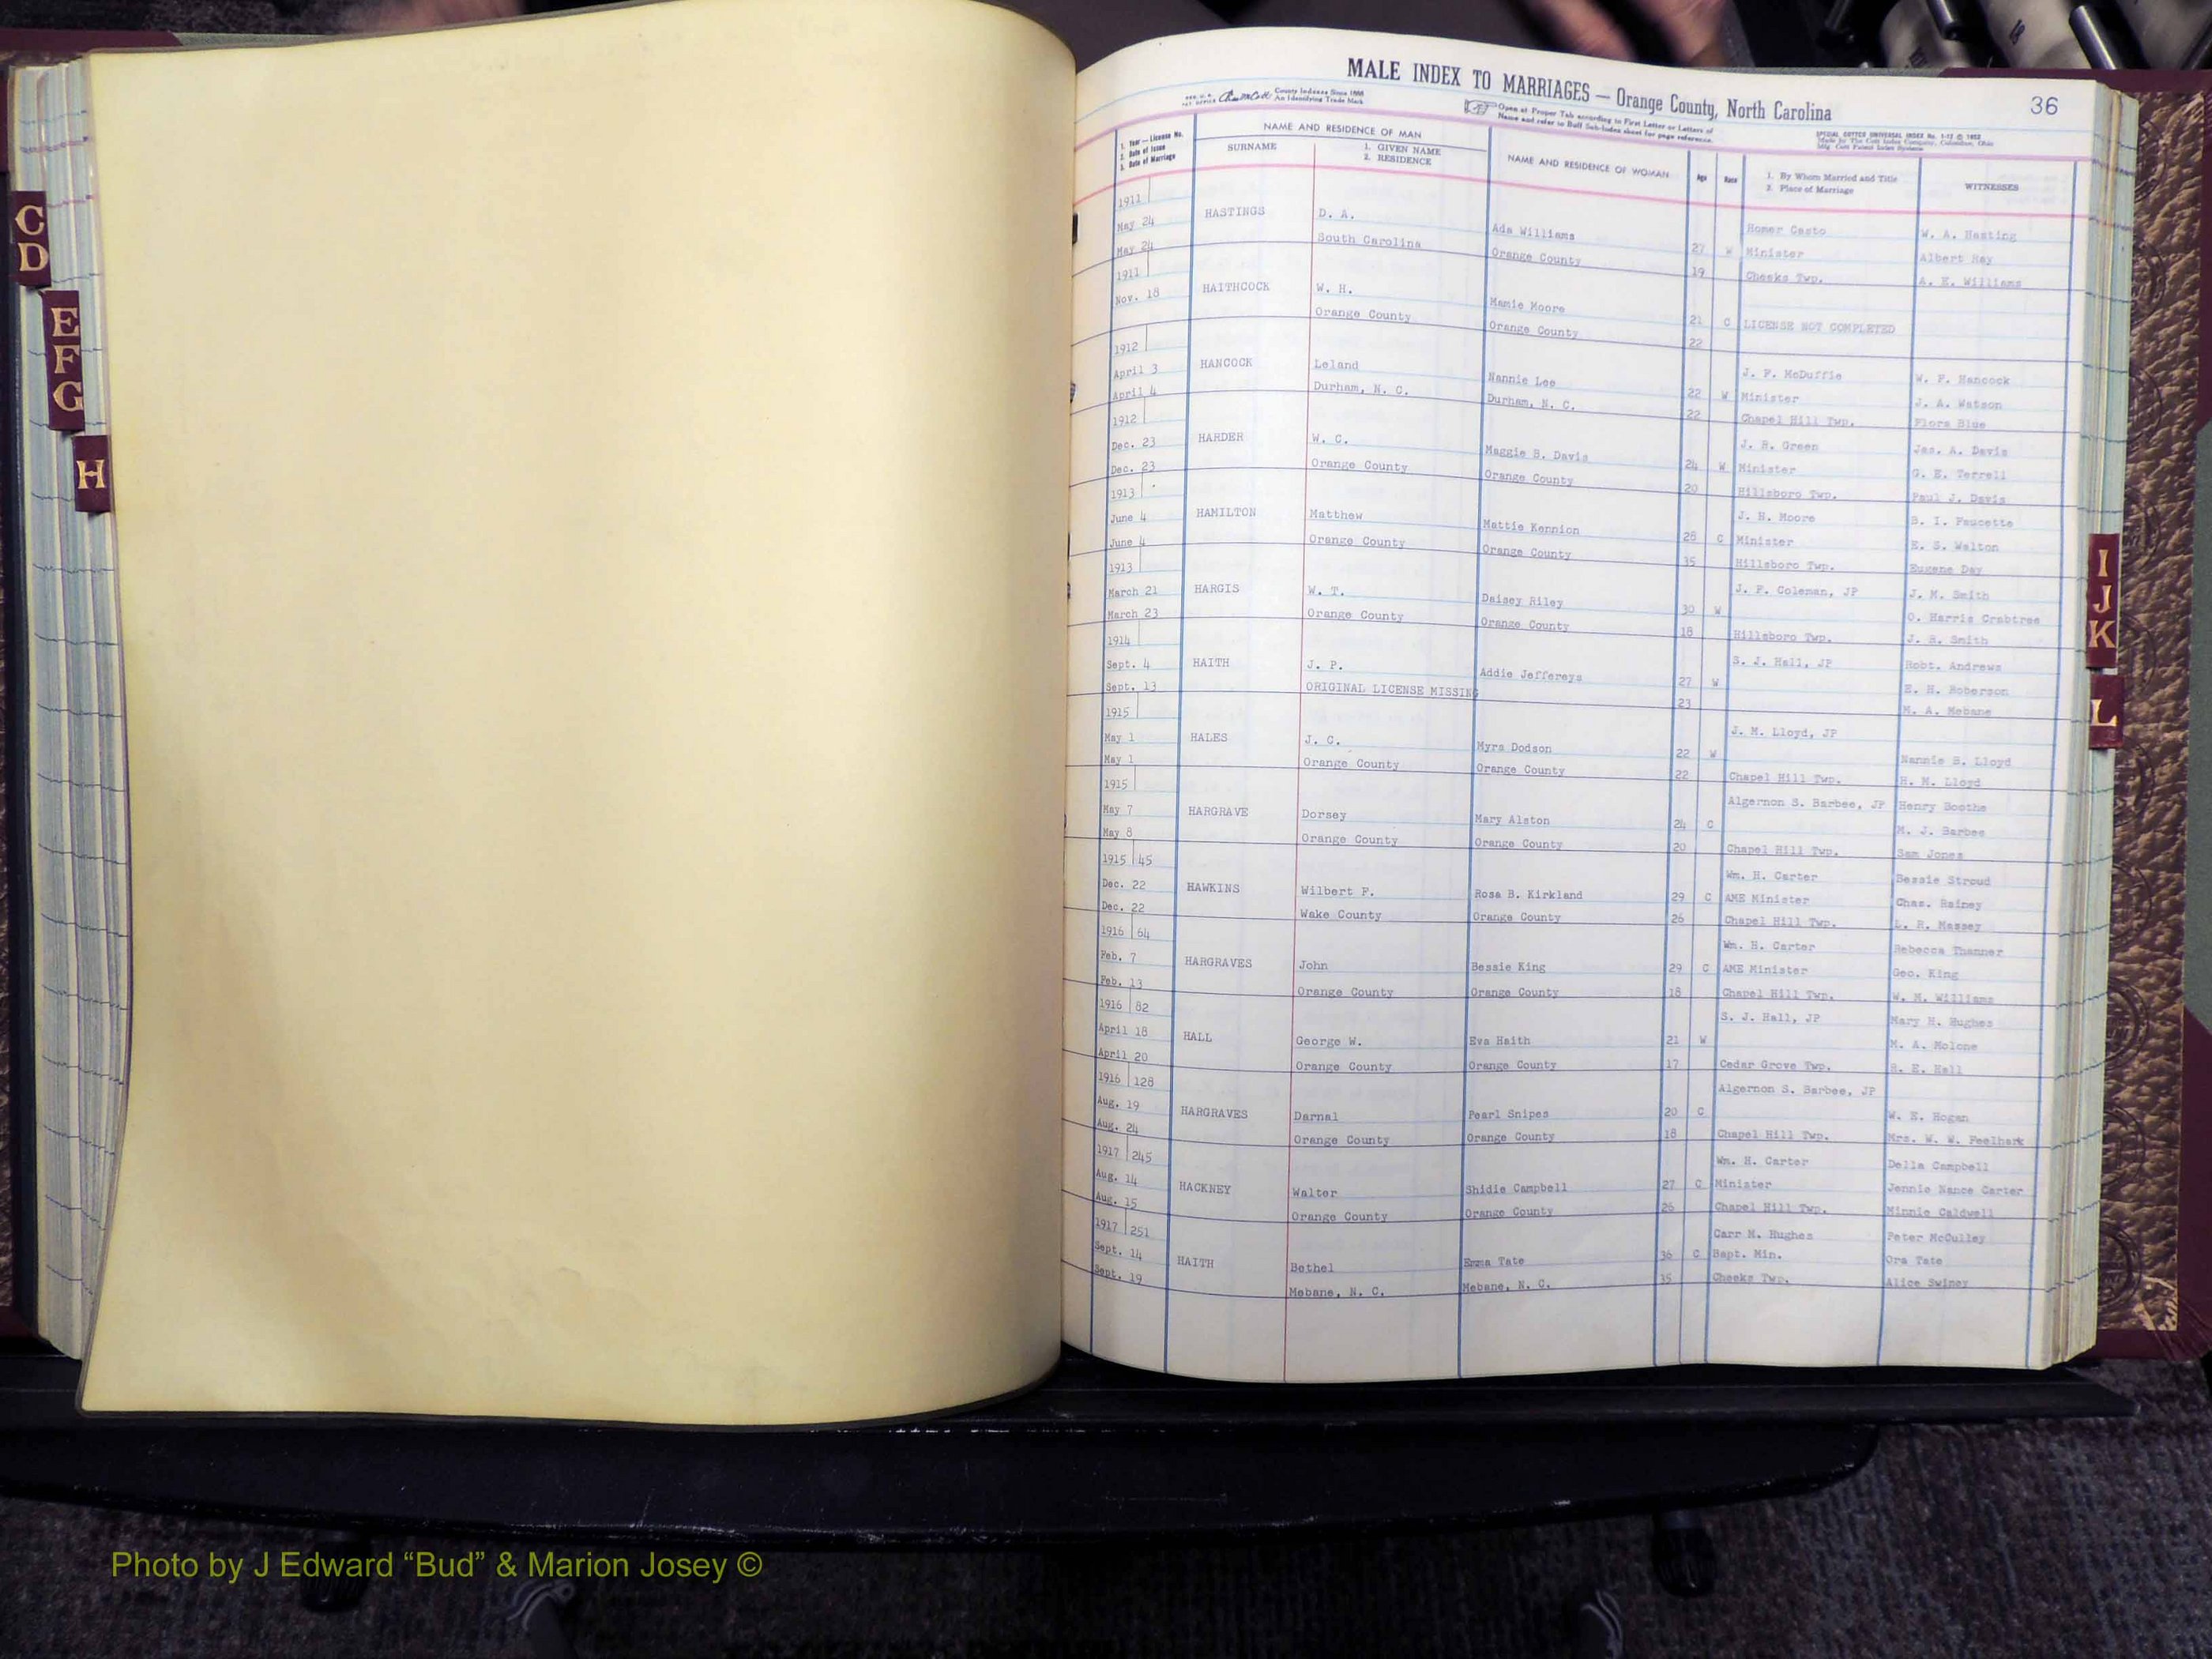 C
D
E
F
G
H
MALE INDEX TO MARRIAGES — Orange County, North Carolina
36
County Indexes Since 1888
An Identifying Trade Mark
Open at Proper Tab according to First Letter or Letters of
Name and refer to Buff Sub-Index sheet for page reference.
SPECIAL COTTCO UNIVERSAL INDEX
Made by The Cott Index Company, Columbus, Ohio
1. Year — License No.
2. Date of Issue
3. Date of Marriage
NAME AND RESIDENCE OF MAN
SURNAME
1. GIVEN NAME
2. RESIDENCE
NAME AND RESIDENCE OF WOMAN
Age
Race
1. By Whom Married and Title
2. Place of Marriage
WITNESSES
1911
May 24 HASTINGS D. A. Ada Williams Homer Casto W. A. Hasting
May 24 South Carolina Orange County 27 W Minister Albert Hay
19 Cheeks Twp. A. E. Williams
1911
Nov. 18 HAITHCOCK W. H. Mamie Moore
Orange County Orange County 21 C LICENSE NOT COMPLETED
22
1912
April 3 HANCOCK Leland Nannie Lee J. P. McDuffie W. F. Hancock
April 4 Durham, N. C. Durham, N. C. 22 W Minister J. A. Watson
22 Chapel Hill Twp. Flora Blue
1912
Dec. 23 HARDER W. C. Maggie B. Davis J. R. Green Jas. A. Davis
Dec. 23 Orange County Orange County 24 W Minister G. E. Terrell
20 Hillsboro Twp. Paul J. Davis
1913
June 4 HAMILTON Matthew Mattie Kennion J. H. Moore B. I. Faucette
June 4 Orange County Orange County 28 C Minister E. S. Walton
35 Hillsboro Twp. Eugene Day
1913
March 21 HARGIS W. T. Daisey Riley J. F. Coleman, JP J. M. Smith
March 23 Orange County Orange County 30 W O. Harris Crabtree
18 Hillsboro Twp. J. R. Smith
1914
Sept. 4 HAITH J. P. Addie Jeffereys S. J. Hall, JP Robt. Andrews
Sept. 13 ORIGINAL LICENSE MISSING 27 W E. H. Roberson
23 M. A. Mebane
1915
May 1 HALES J. C. Myra Dodson J. M. Lloyd, JP
May 1 Orange County Orange County 22 W Nannie B. Lloyd
22 Chapel Hill Twp. H. M. Lloyd
1915
May 7 HARGRAVE Dorsey Mary Alston Algernon S. Barbee, JP Henry Boothe
May 8 Orange County Orange County 24 C M. J. Barbee
20 Chapel Hill Twp. Sam Jones
1915 45 Wm. H. Carter Bessie Stroud
Dec. 22 HAWKINS Wilbert F. Rosa B. Kirkland 29 C AME Minister Chas. Rainey
Dec. 22 Wake County Orange County 26 Chapel Hill Twp. L. R. Massey
1916 64 Wm. H. Carter Rebecca Thanner
Feb. 7 HARGRAVES John Bessie King 29 C AME Minister Geo. King
Feb. 13 Orange County Orange County 18 Chapel Hill Twp. W. M. Williams
1916 82 S. J. Hall, JP Mary H. Hughes
April 18 HALL George W. Eva Haith 21 W M. A. Molone
April 20 Orange County Orange County 17 Cedar Grove Twp. R. E. Hall
1916 128 Algernon S. Barbee, JP
Aug. 19 HARGRAVES Darnal Pearl Snipes 20 C W. E. Hogan
Aug. 24 Orange County Orange County 18 Chapel Hill Twp. Mrs. W. W. Feelhark
1917 245 Wm. H. Carter Della Campbell
Aug. 14 HACKNEY Walter Shidie Campbell 27 C Minister Jennie Nance Carter
Aug. 15 Orange County Orange County 26 Chapel Hill Twp. Minnie Caldwell
1917 251 Carr M. Hughes Peter McCulley
Sept. 14 HAITH Bethel Emma Tate 36 C Bapt. Min. Ora Tate
Sept. 19 Mebane, N. C. Mebane, N. C. 35 Cheeks Twp. Alice Swiney
I
J
K
L
Photo by J Edward “Bud” & Marion Josey ©